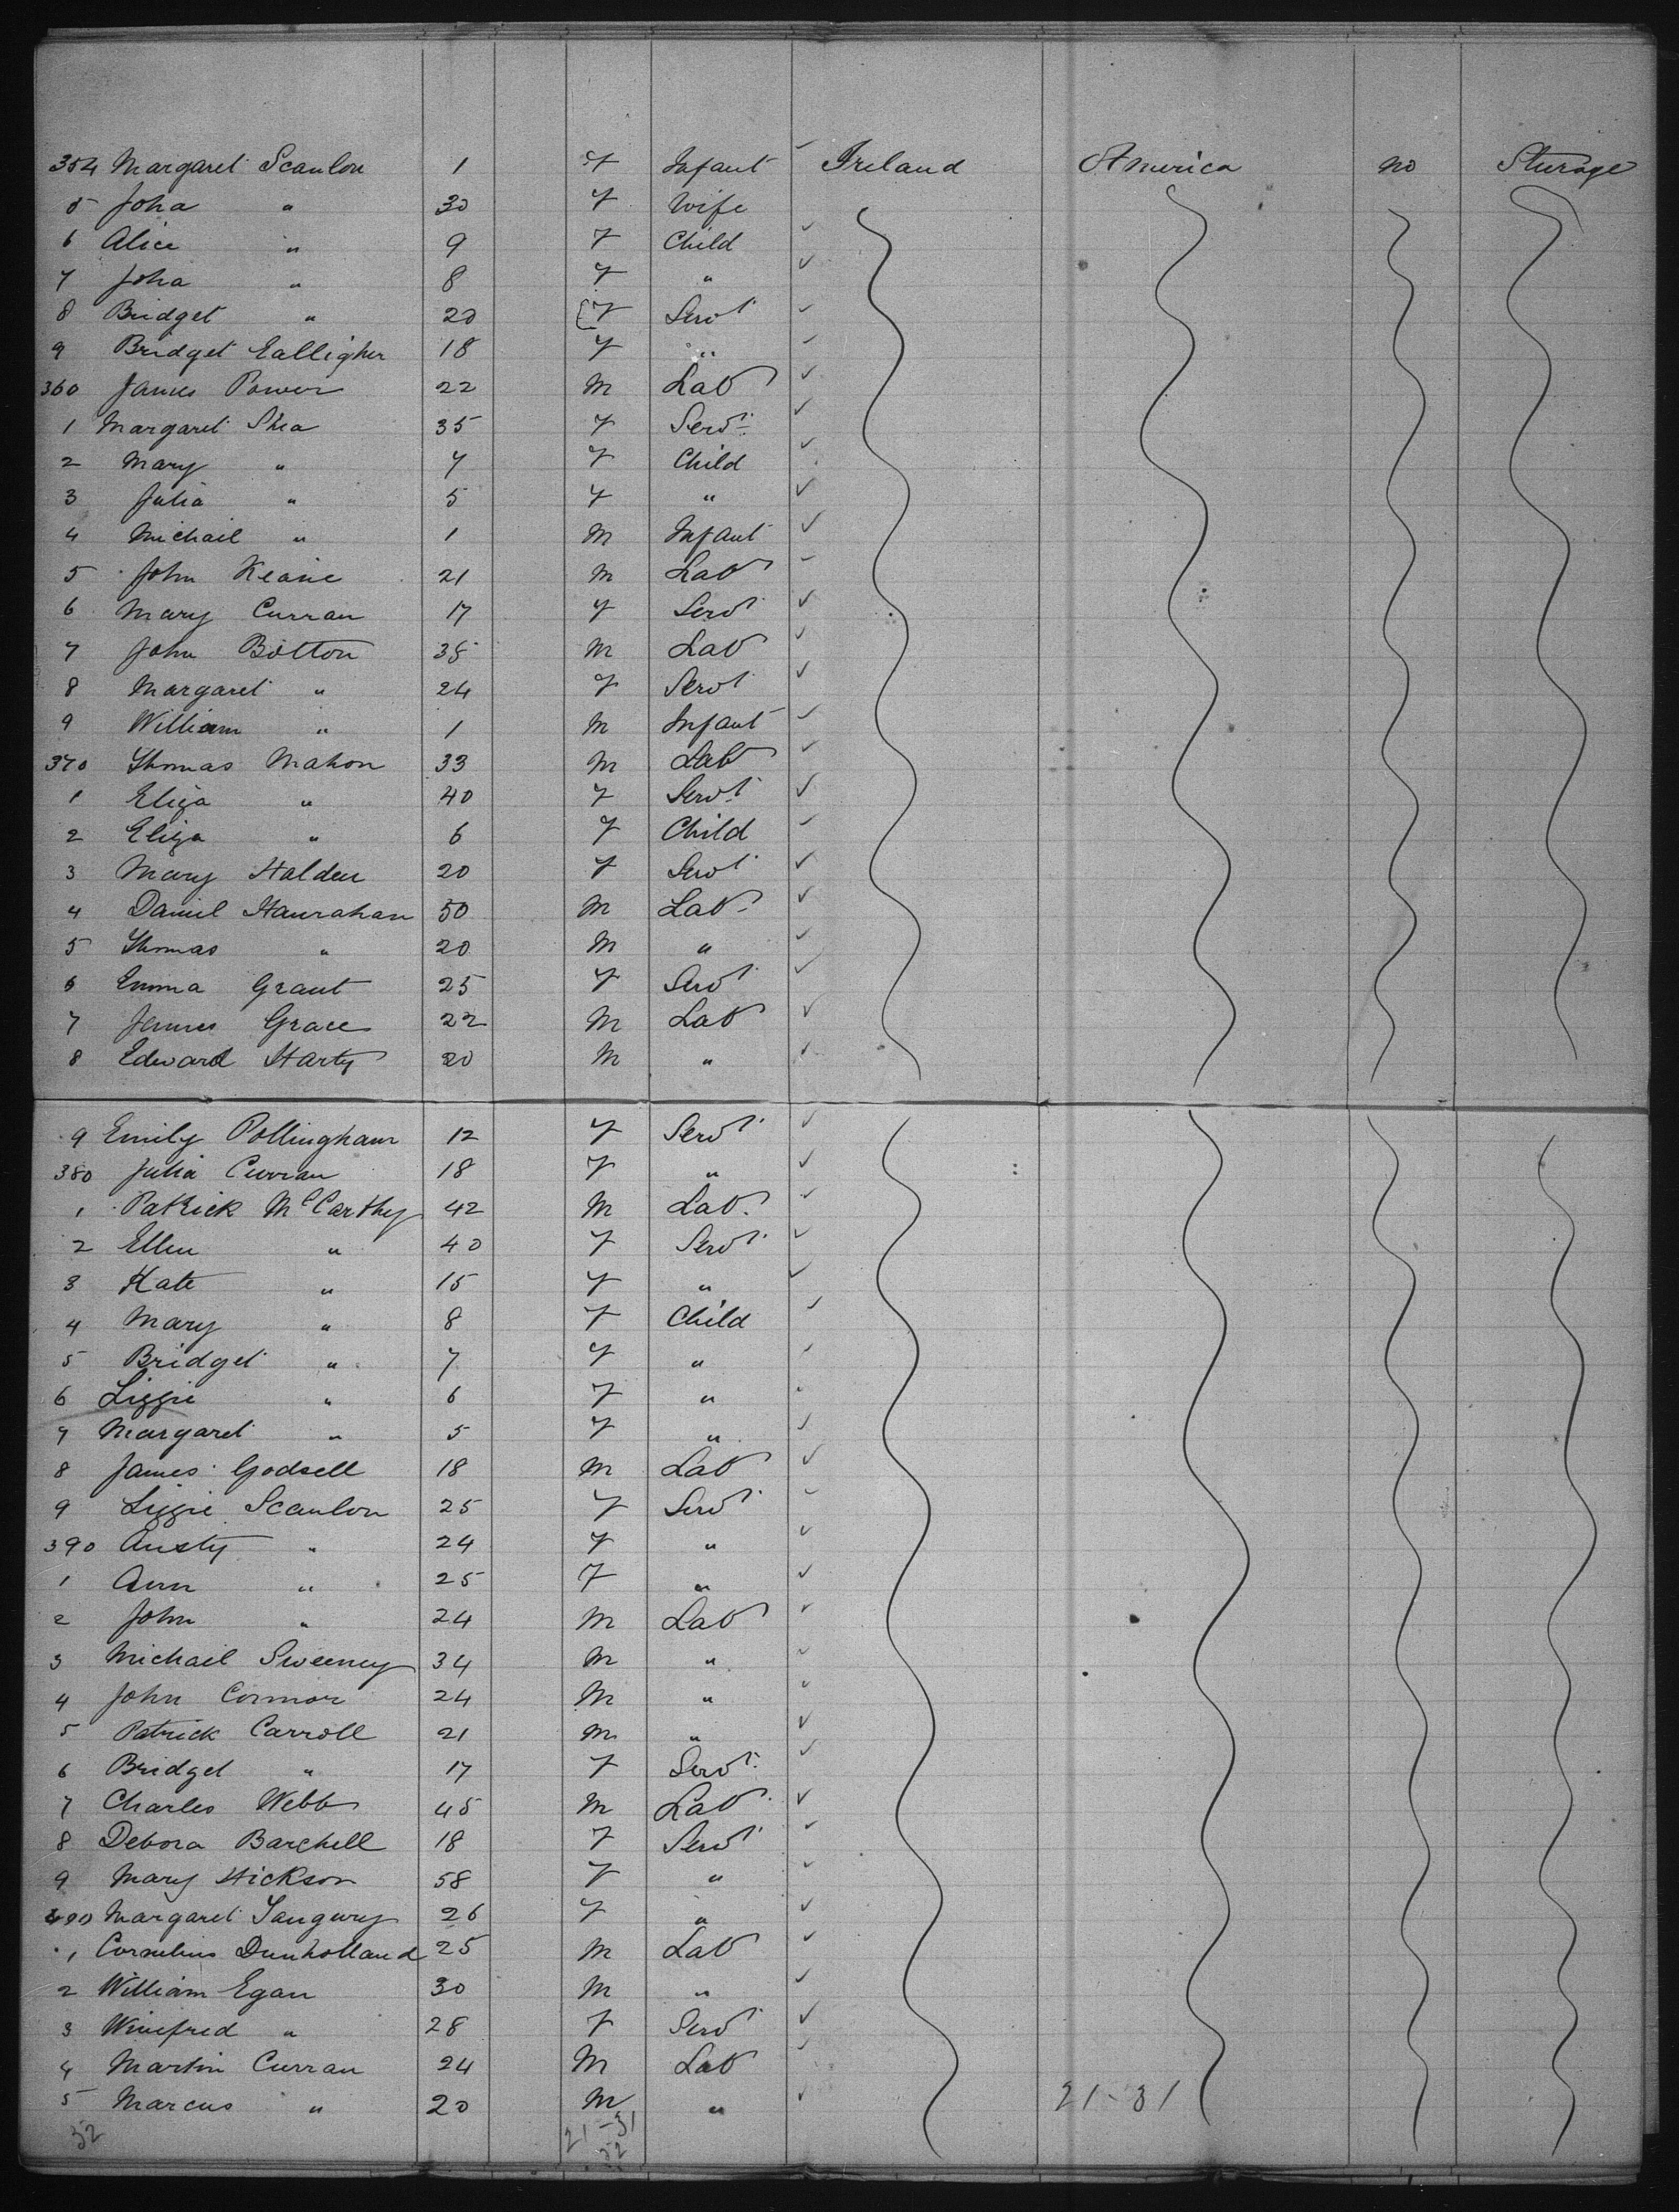 354 Margaret Scanlon 1 F Infant Ireland America no Sturage
5 Joha " 30 F Wife
6 Alice " 9 F Child
7 Joha " 8 F "
8 Bridget " 20 F Servt
9 Bridget Galligher 18 F "
360 James Power 22 M Lab
1 Margaret Shea 35 F Servt
2 Mary " 7 F Child
3 Julia " 5 F "
4 Michail " 1 M Infant
5 John Keane 21 M Lab
6 Mary Curran 17 F Servt
7 John Bolton 35 M Lab
8 Margaret " 24 F Servt
9 William " 1 M Infant
370 Thomas Mahon 33 M Lab
1 Eliza " 40 F Servt
2 Eliza " 6 F Child
3 Mary Halden 20 F Servt
4 Daniel Hanrahan 50 M Lab
5 Thomas " 20 M "
6 Emma Grant 25 F Servt
7 James Grace 22 M Lab
8 Edward Harty 20 M "
9 Emily Pollingham 12 F Servt
380 Julia Curran 18 F "
1 Patrick McCarthy 42 M Lab
2 Ellen " 40 F Servt
3 Kate " 15 F "
4 Mary " 8 F Child
5 Bridget " 7 F "
6 Lizzie " 6 F "
7 Margaret " 5 F "
8 James Godsell 18 M Lab
9 Lizzie Scanlon 25 F Servt
390 Austy " 24 F "
1 Ann " 25 F "
2 John " 24 M Lab
3 Michail Sweeney 34 M "
4 John Connor 24 M "
5 Patrick Carroll 21 M "
6 Bridget " 17 F Servt
7 Charles Webb 45 M Lab
8 Debora Barchell 18 F Servt
9 Mary Hickson 58 F "
400 Margaret 26 F "
1 Cornelius Dunholland 25 M Lab
2 William Egan 30 M "
3 Winefred " 28 F Servt
4 Martin Curran 24 M Lab
5 Marcus " 20 M " 21-31
32 21-31
52